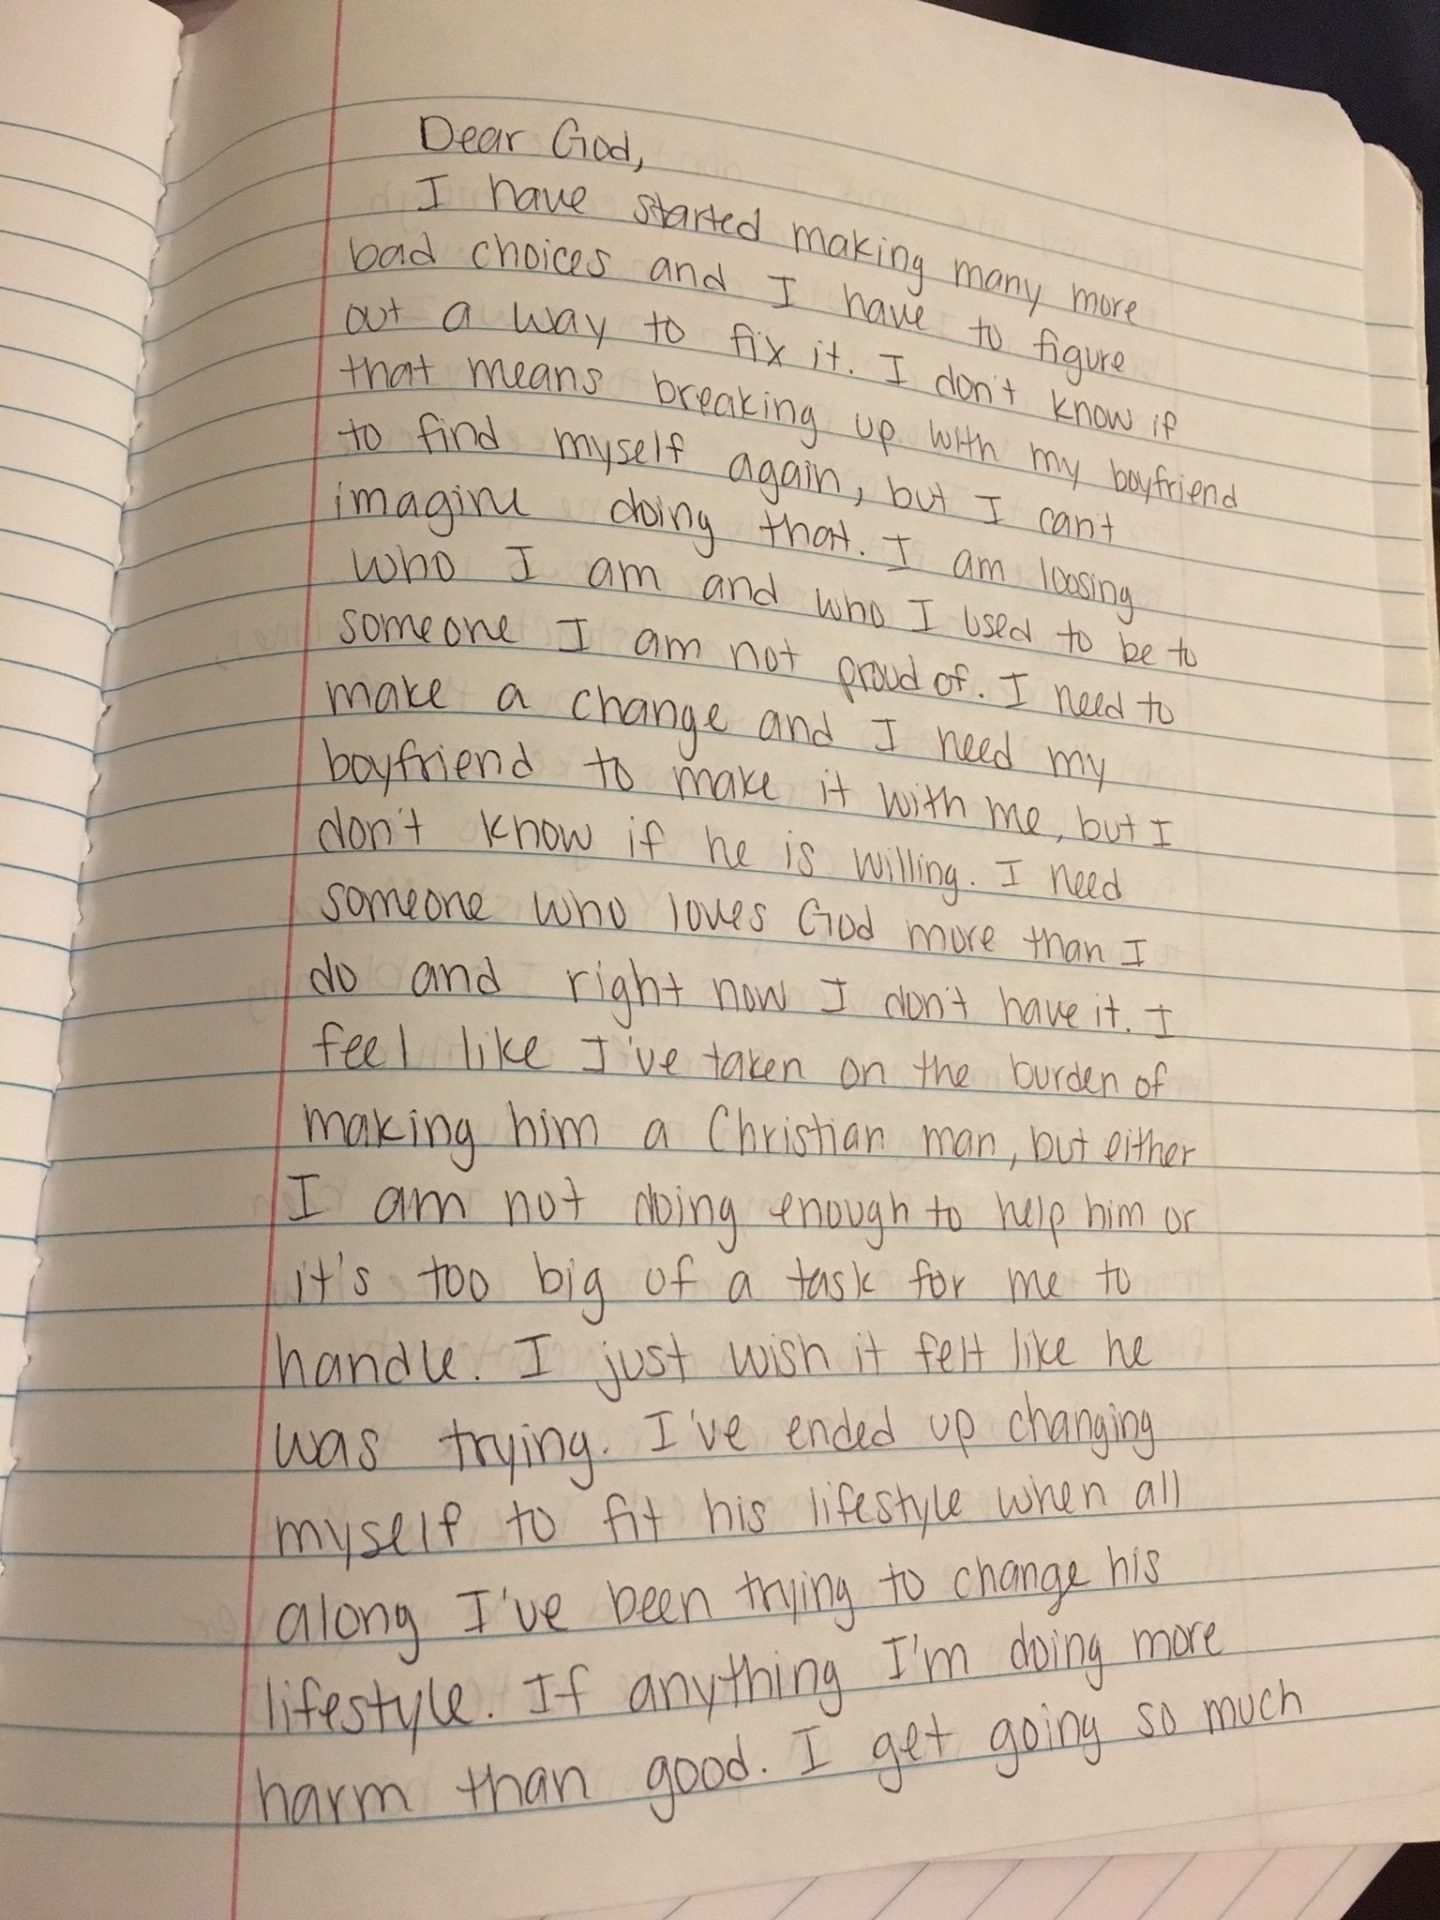 Dear God,
I have started making many more
bad choices and I have to figure
out a way to fix it. I don't know if
that means breaking up with my boyfriend
to find myself again, but I can't
imagine doing that. I am loosing
who I am and who I used to be to
someone I am not proud of. I need to
make a change and I need my
boyfriend to make it with me, but I
don't know if he is willing. I need
someone who loves God more than I
do and right now I don't have it. I
feel like I've taken on the burden of
making him a Christian man, but either
I am not doing enough to help him or
it's too big of a task for me to
handle. I just wish it felt like he
was trying. I've ended up changing
myself to fit his lifestyle when all
along I've been trying to change his
lifestyle. If anything I'm doing more
harm than good. I get going so much